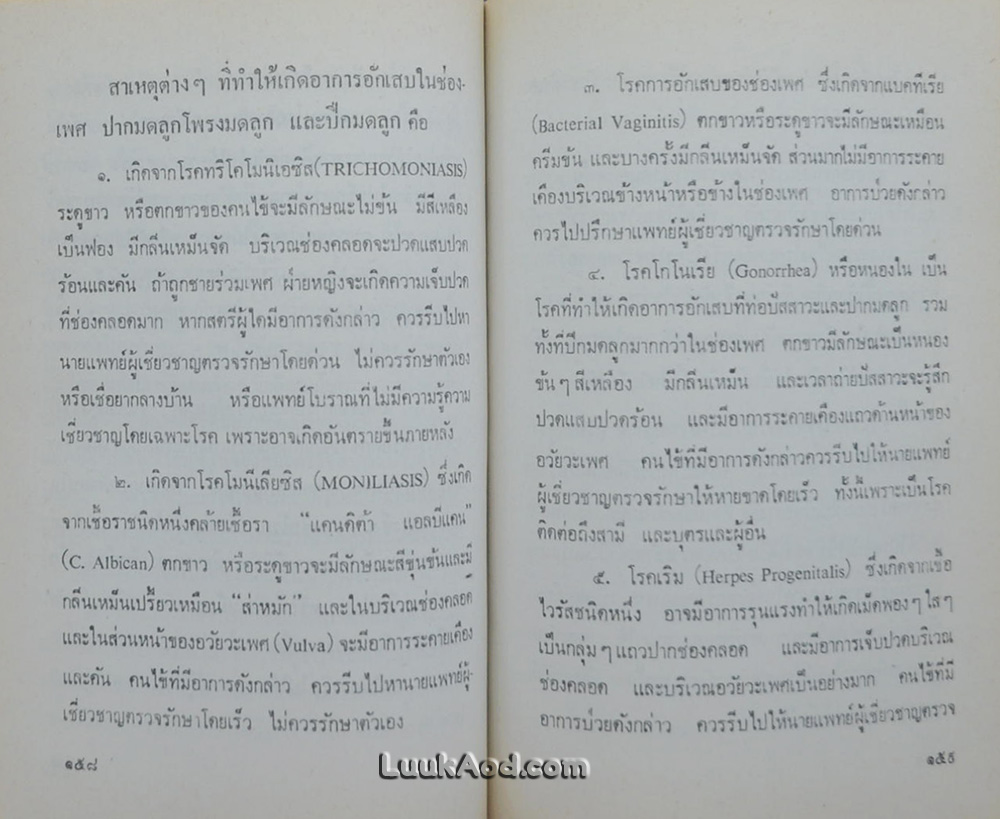 สาเหตุต่างๆ ที่ทำให้เกิดอาการอักเสบในช่อง-
เพศ ปากมดลูกโพรงมดลูก และปีกมดลูก คือ
๑. เกิดจากโรคทริโคโมนิเอซิส(TRICHOMONIASIS)
ระดูขาว หรือตกขาวของคนไข้จะมีลักษณะไม่ข้น มีสีเหลือง
เป็นฟอง มีกลิ่นเหม็นจัด บริเวณช่องคลอดจะปวดแสบปวด
ร้อนและคัน ถ้าถูกชายร่วมเพศ ฝ่ายหญิงจะเกิดความเจ็บปวด
ที่ช่องคลอดมาก หากสตรีผู้ใดมีอาการดังกล่าว ควรรีบไปหา
นายแพทย์ผู้เชี่ยวชาญตรวจรักษาโดยด่วน ไม่ควรรักษาตัวเอง
หรือเชื่อยากลางบ้าน หรือแพทย์โบราณที่ไม่มีความรู้ความ
เชี่ยวชาญโดยเฉพาะโรค เพราะอาจเกิดอันตรายขึ้นภายหลัง
๒. เกิดจากโรคโมนีเลียซิส (MONILIASIS) ซึ่งเกิด
จากเชื้อราชนิดหนึ่งคล้ายเชื้อรา "แคนดิต้า แอลบีแคน"
(C. Albican) ตกขาว หรือระดูขาวจะมีลักษณะสีขุ่นข้นและมี
กลิ่นเหม็นเปรี้ยวเหมือน "ส่าหมัก" และในบริเวณช่องคลอด
และในส่วนหน้าของอวัยวะเพศ (Vulva) จะมีอาการระคายเคือง
และคัน คนไข้ที่มีอาการดังกล่าว ควรรีบไปหานายแพทย์ผู้-
เชี่ยวชาญตรวจรักษาโดยเร็ว ไม่ควรรักษาตัวเอง
๑๕๘
๓. โรคการอักเสบของช่องเพศ ซึ่งเกิดจากแบคทีเรีย
(Bacterial Vaginitis) ตกขาวหรือระดูขาวจะมีลักษณะเหมือน
ครีมข้น และบางครั้งมีกลิ่นเหม็นจัด ส่วนมากไม่มีอาการระคาย
เคืองบริเวณข้างหน้าหรือข้างในช่องเพศ อาการป่วยดังกล่าว
ควรไปปรึกษาแพทย์ผู้เชี่ยวชาญตรวจรักษาโดยด่วน
๔. โรคโกโนเรีย (Gonorrhea) หรือหนองใน เป็น
โรคที่ทำให้เกิดอาการอักเสบที่ท่อปัสสาวะและปากมดลูก รวม
ทั้งที่ปีกมดลูกมากกว่าในช่องเพศ ตกขาวมีลักษณะเป็นหนอง
ข้นๆ สีเหลือง มีกลิ่นเหม็น และเวลาถ่ายปัสสาวะจะรู้สึก
ปวดแสบปวดร้อน และมีอาการระคายเคืองแถวด้านหน้าของ
อวัยวะเพศ คนไข้ที่มีอาการดังกล่าวควรรีบไปให้นายแพทย์
ผู้เชี่ยวชาญตรวจรักษาให้หายขาดโดยเร็ว ทั้งนี้เพราะเป็นโรค
ติดต่อถึงสามี และบุตรและผู้อื่น
๕. โรคเริม (Herpes Progenitalis) ซึ่งเกิดจากเชื้อ
ไวรัสชนิดหนึ่ง อาจมีอาการรุนแรงทำให้เกิดเม็ดพองๆ ใสๆ
เป็นกลุ่มๆ แถวปากช่องคลอด และมีอาการเจ็บปวดบริเวณ
ช่องคลอด และบริเวณอวัยวะเพศเป็นอย่างมาก คนไข้ที่มี
อาการป่วยดังกล่าว ควรรีบไปให้นายแพทย์ผู้เชี่ยวชาญตรวจ
๑๕๙
LuukAod.com